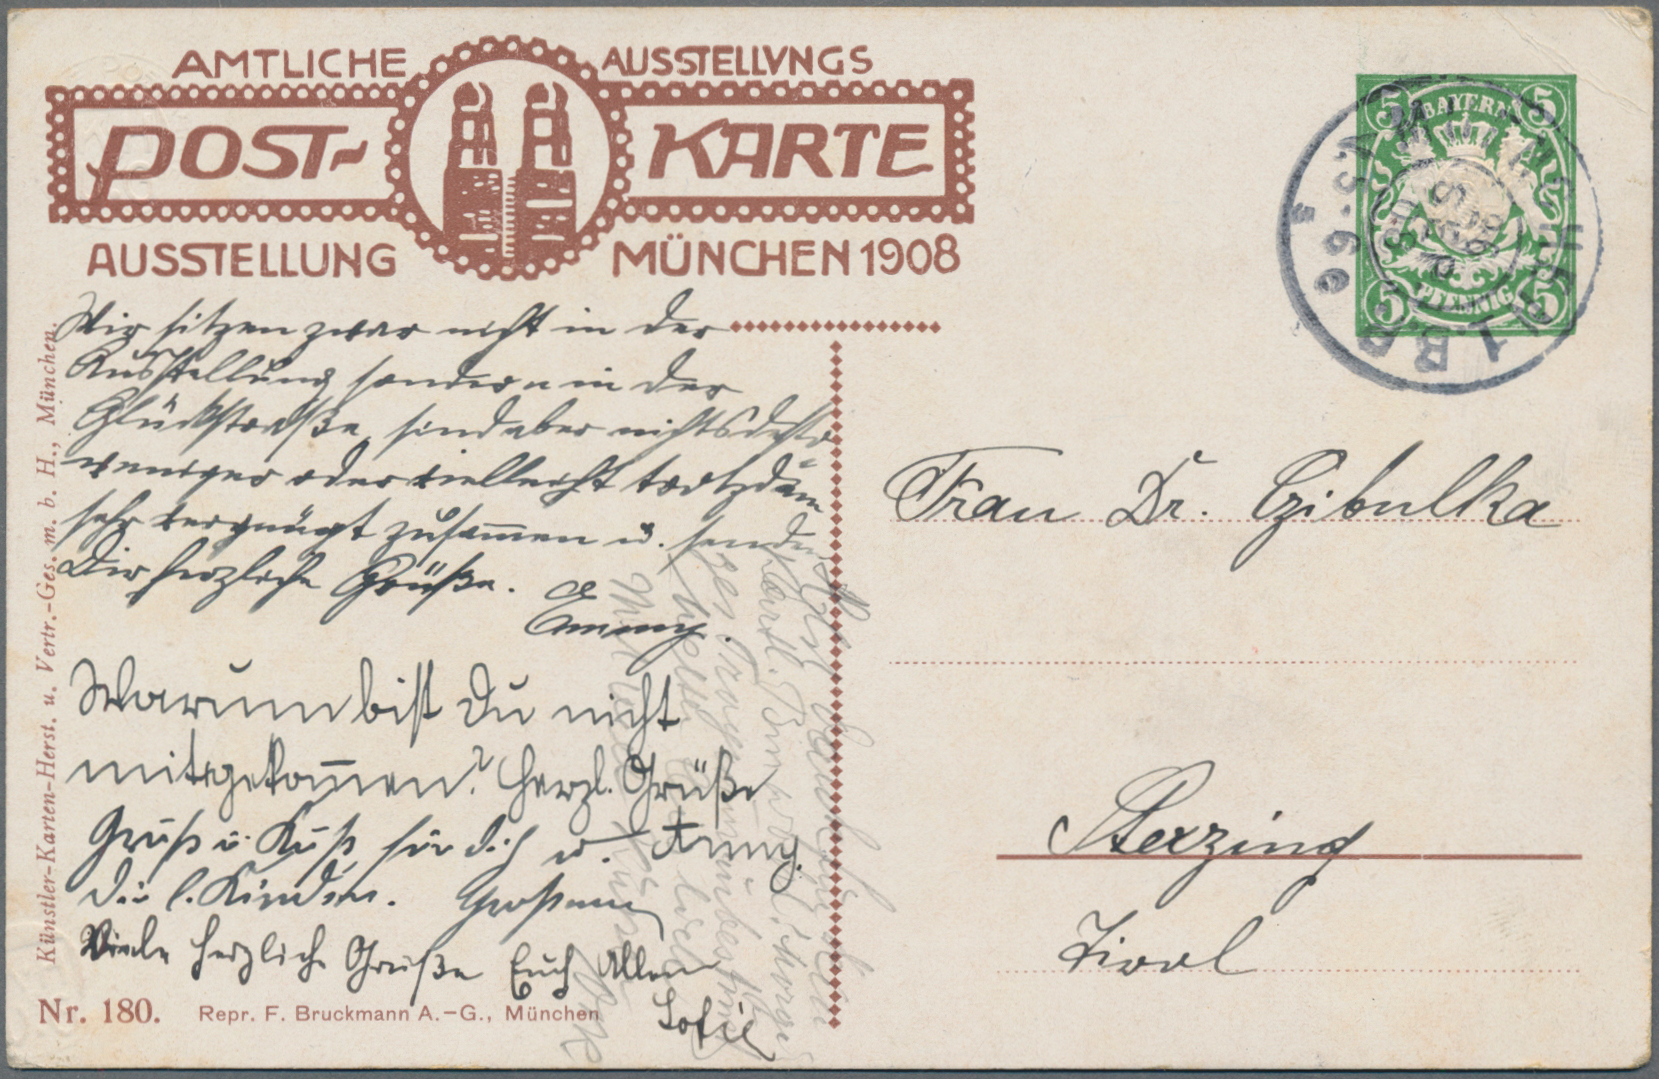 AMTLICHE AUSSTELLVNGS
POST- KARTE
AUSSTELLUNG MÜNCHEN 1908
BAYERN
5 5
5 5
PFENNIG
Wir sitzen zwar nicht in der
Ausstellung sondern in der
Glückstraße, sind aber nichtsdesto
weniger oder vielleicht trotzdem
sehr vergnügt zusammen u. senden
Dir herzliche Grüße.
Emmy.
Warum bist Du nicht
mitgekommen? Herzl. Grüße
Anny.
Gruß u. Kuß für dich u.
die l. Kinder. Großmama
Viele herzliche Grüße Euch Allen
Sofie
Frau Dr. Czibulka
Sterzing
Tirol
Künstler-Karten-Herst. u. Vertr.-Ges. m. b. H., München.
Nr. 180. Repr. F. Bruckmann A.-G., München